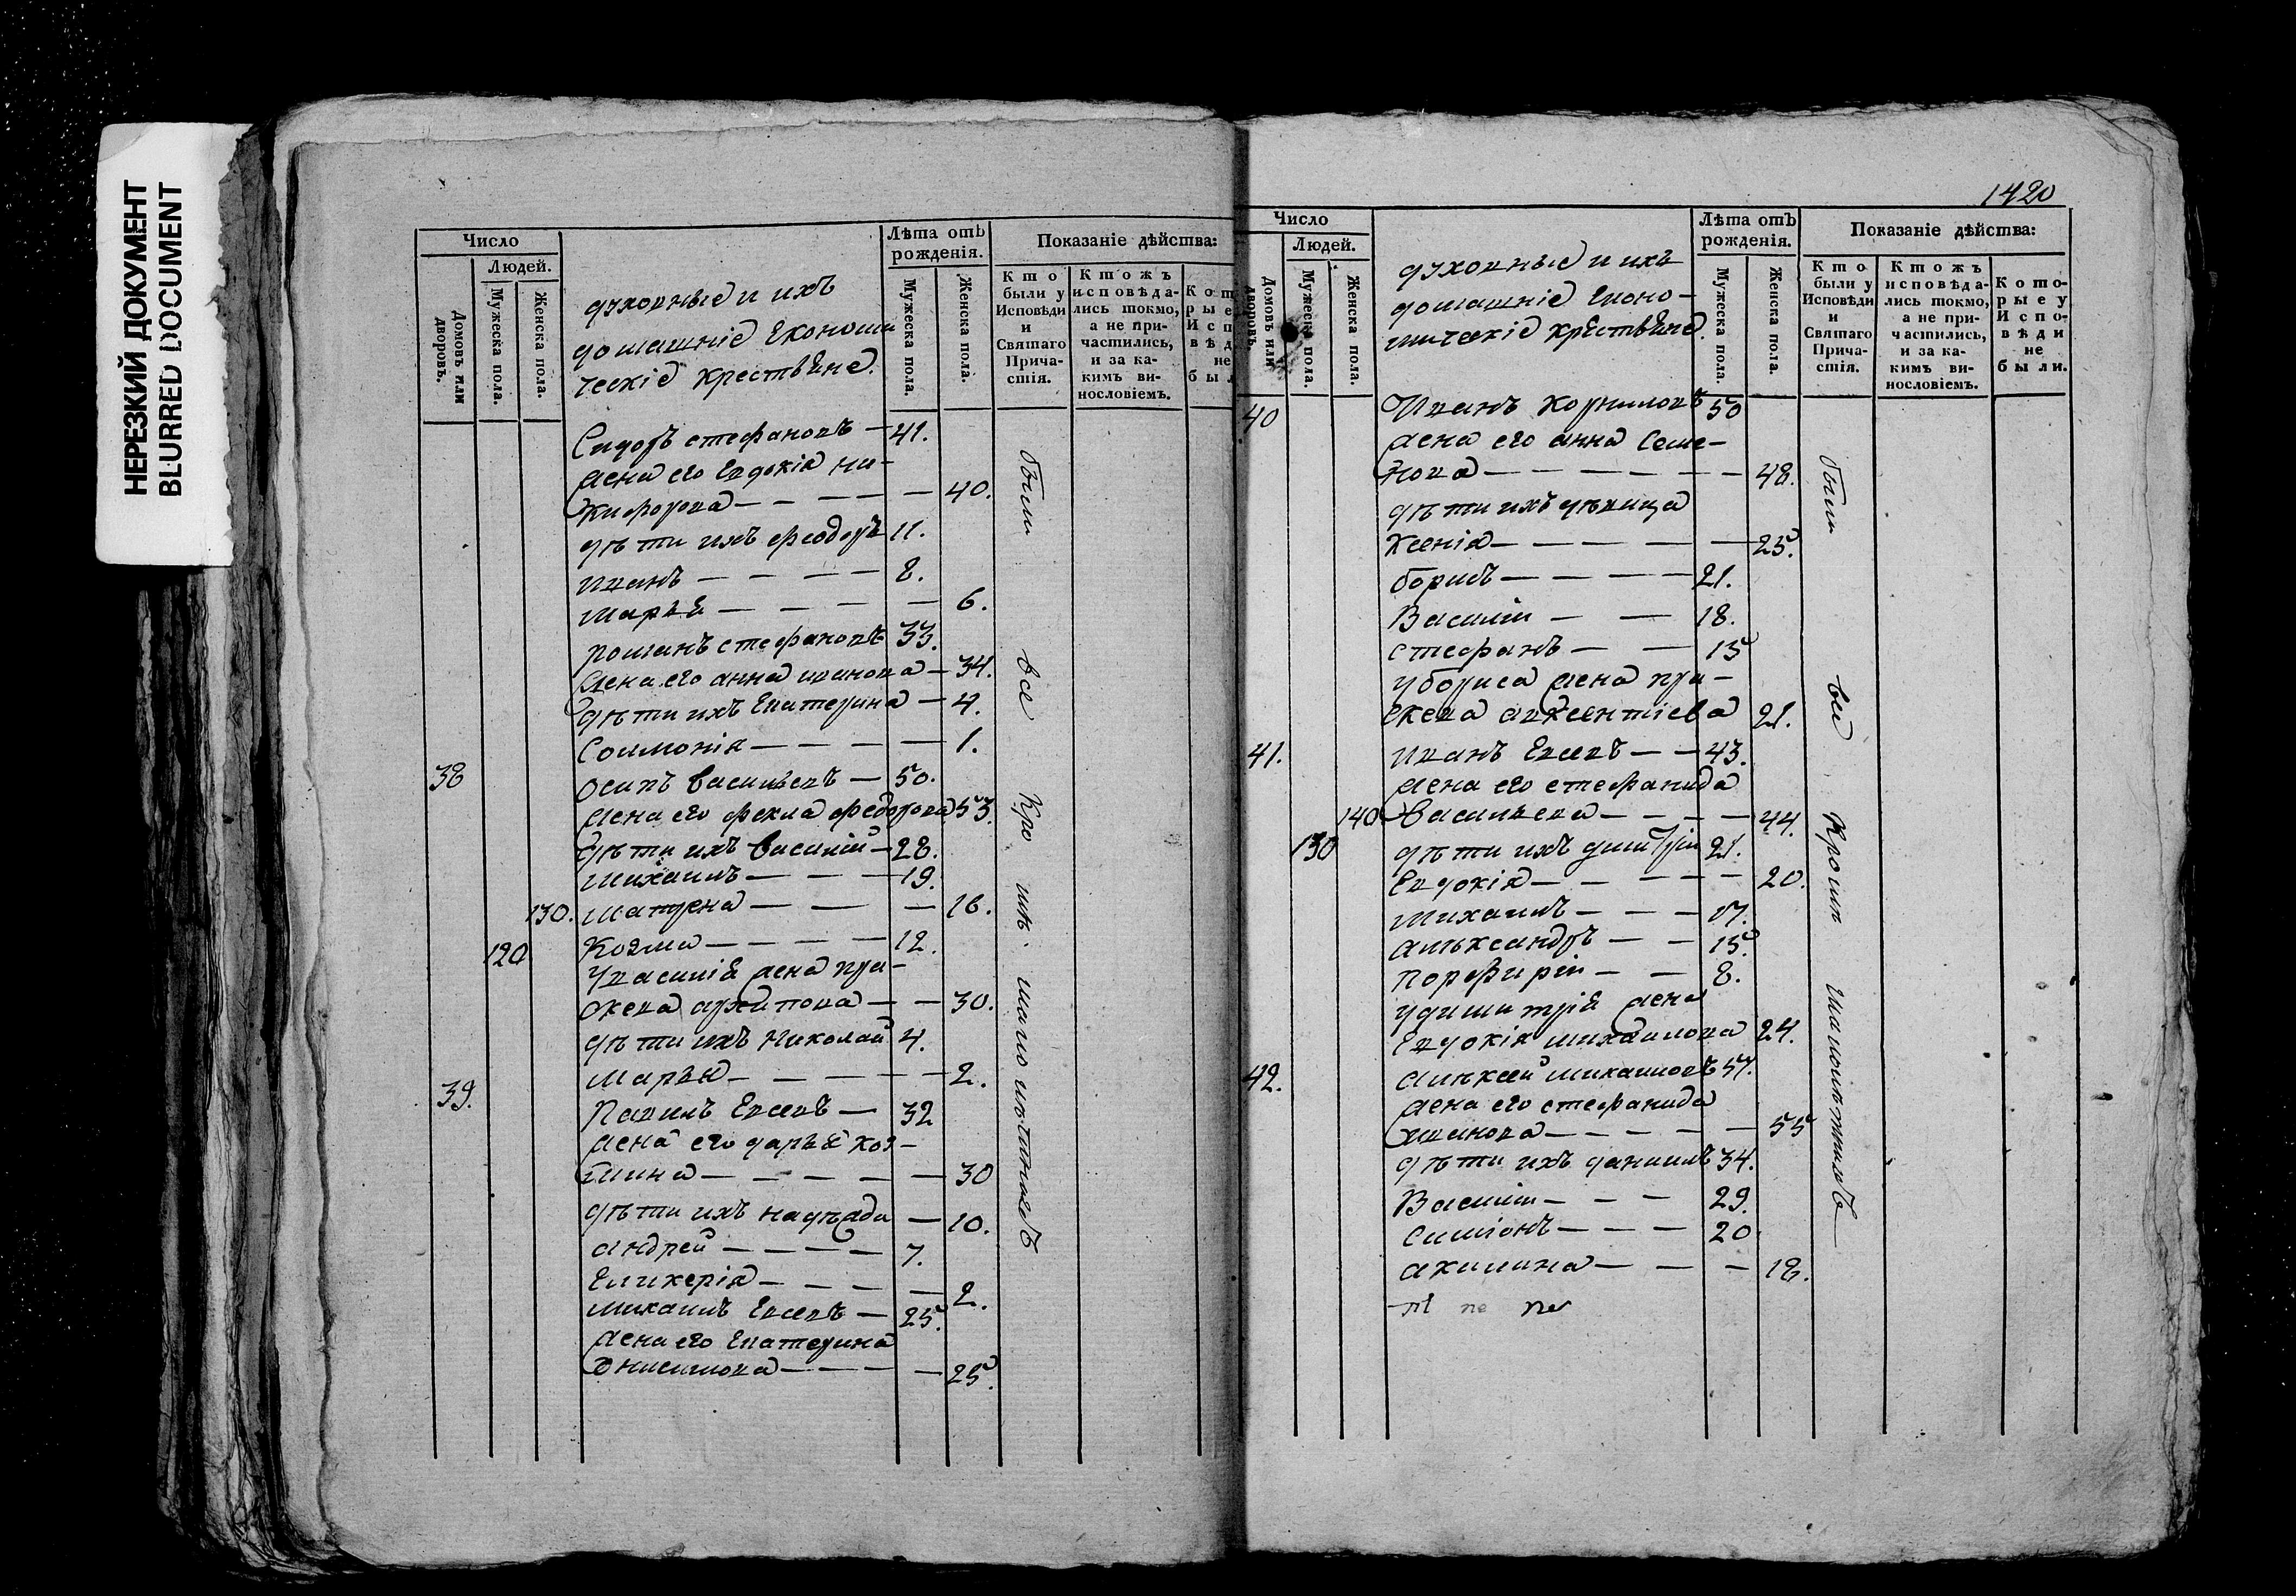 НЕРЕЗКИЙ ДОКУМЕНТ
BLURRED DOCUMENT
Число
Людей.
Домовъ или дворовъ.
Мужеска пола.
Женска пола.
духовные и ихъ
домашніе Економи
ческіе крестьяне.
Лѣта отъ рожденія.
Мужеска пола.
Женска пола.
Показаніе дѣйства:
Кто были у Исповѣди и Святаго Причастія.
Ктожъ исповѣдались токмо, а не причастились, и за какимъ винословіемъ.
Сидоръ стефановъ — 41.
жена его Евдокія ни-
кифорова — — — — — 40.
дѣти ихъ феодоръ 11.
иванъ — — — — 8.
марья — — — — 6.
романъ стефановъ 33.
жена его анна иванова — 34.
дѣти ихъ Екатерина — 4.
Соломонія — — — — 1.
38 осипъ васильевъ — 50.
жена его фекла федорова 53.
дѣти ихъ василій — 28.
михаилъ — — — 19.
130. матрена — — — 16.
120 Козма — — — — 12.
у василія жена пра-
сковья архипова — — 30.
дѣти ихъ Николай 4.
марья — — — — — 2.
39. Павелъ Евсевъ — 32
жена его дарья коз-
мина — — — — — 30
дѣти ихъ надежда — 10.
андрей — — — — 7.
Гликерія — — — — 2.
михаилъ Евсевъ — 25.
жена его Екатерина
Онисимова — — — — 25.
были все кромѣ малолѣтныхъ
1420
Число
Людей.
Домовъ или дворовъ.
Мужеска пола.
Женска пола.
духовные и ихъ
домашніе Еконо-
мическіе крестьяне.
Лѣта отъ рожденія.
Мужеска пола.
Женска пола.
Показаніе дѣйства:
Кто были у Исповѣди и Святаго Причастія.
Ктожъ исповѣдались токмо, а не причастились, и за какимъ винословіемъ.
Которые у Исповѣди не были.
40 Иванъ Корниловъ 50
жена его анна Семе-
нова — — — — — — 48.
дѣти ихъ дѣвица
Ксенія — — — — — 25.
борисъ — — — — 21.
Василіи — — 18.
стефанъ — — 15
у бориса жена пра-
сковья авксентіева 21.
41. иванъ Евсевъ — — 43.
жена его стефанида
140 васильева — — — — 44.
130 дѣти ихъ димитріи 21.
Евдокія — — — — — 20.
михаилъ — — — 17.
алѣксандръ — — 15.
порфиріи — — 8.
у димитрія жена
Евдокія михаилова 24.
42. алѣксей михаиловъ 57.
жена его стефанида
иванова — — — — — 55
дѣти ихъ даниилъ 34.
Василіи — — — 29.
симіонъ — — — 20.
акилина — — — 18.
были все кромѣ малолѣтныхъ